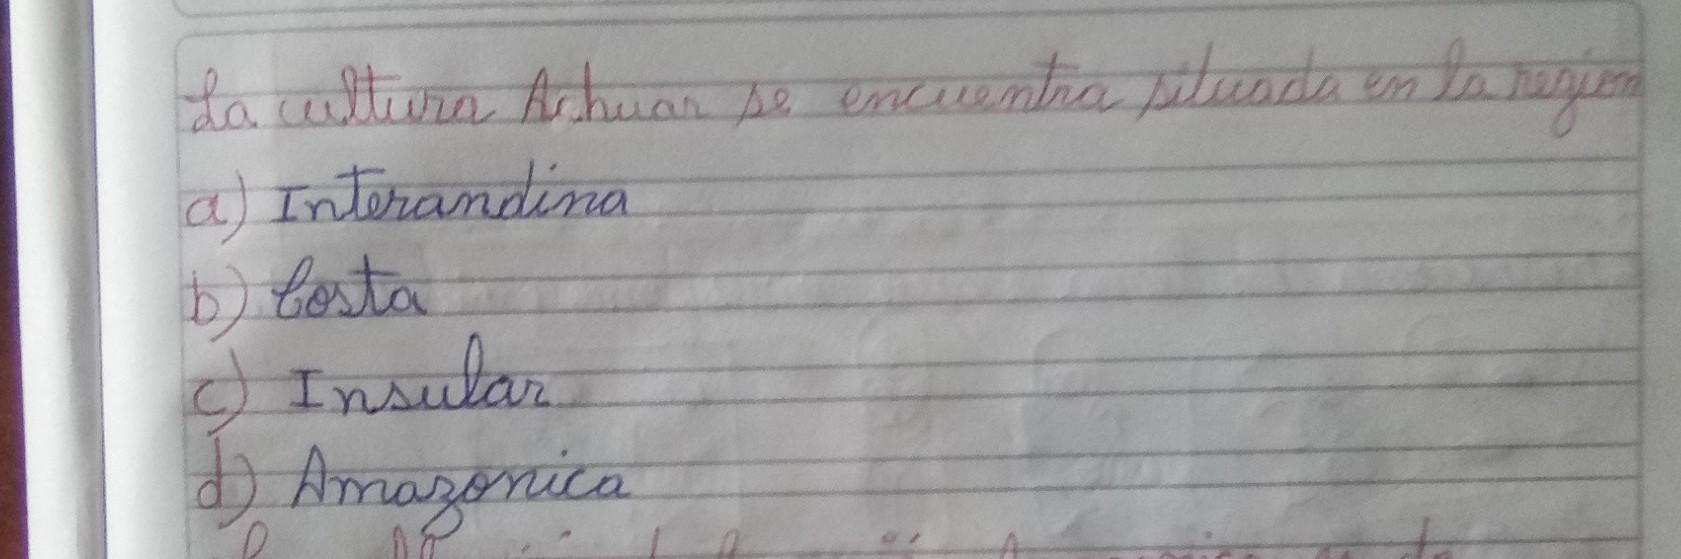 La cultura Achuar se encuentra situada en la region
a) Interandina
b) Costa
c) Insular
d) Amazonica